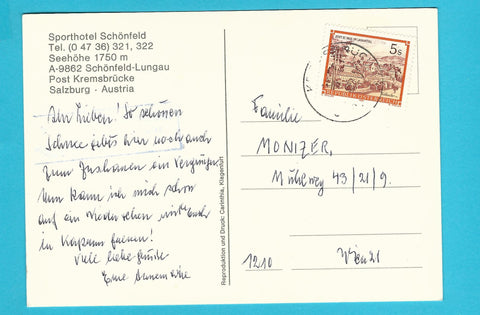 Sporthotel Schönfeld
Tel. (0 47 36) 321, 322
Seehöhe 1750 m
A-9862 Schönfeld-Lungau
Post Kremsbrücke
Salzburg - Austria
Ihr Lieben! So schönen
Schnee gibts hier noch auch
zum Zuschauen ein Vergnügen
Nun kann ich mich schon
auf ein Wiedersehen mit Euch
in Kaprun freuen!
Viele liebe Grüße
Eure Annemarie
Reproduktion und Druck: Carinthia, Klagenfurt
5s
REPUBLIK ÖSTERREICH
Familie
MONIZER,
Mühlweg 43/21/9.
1210 Wien 21